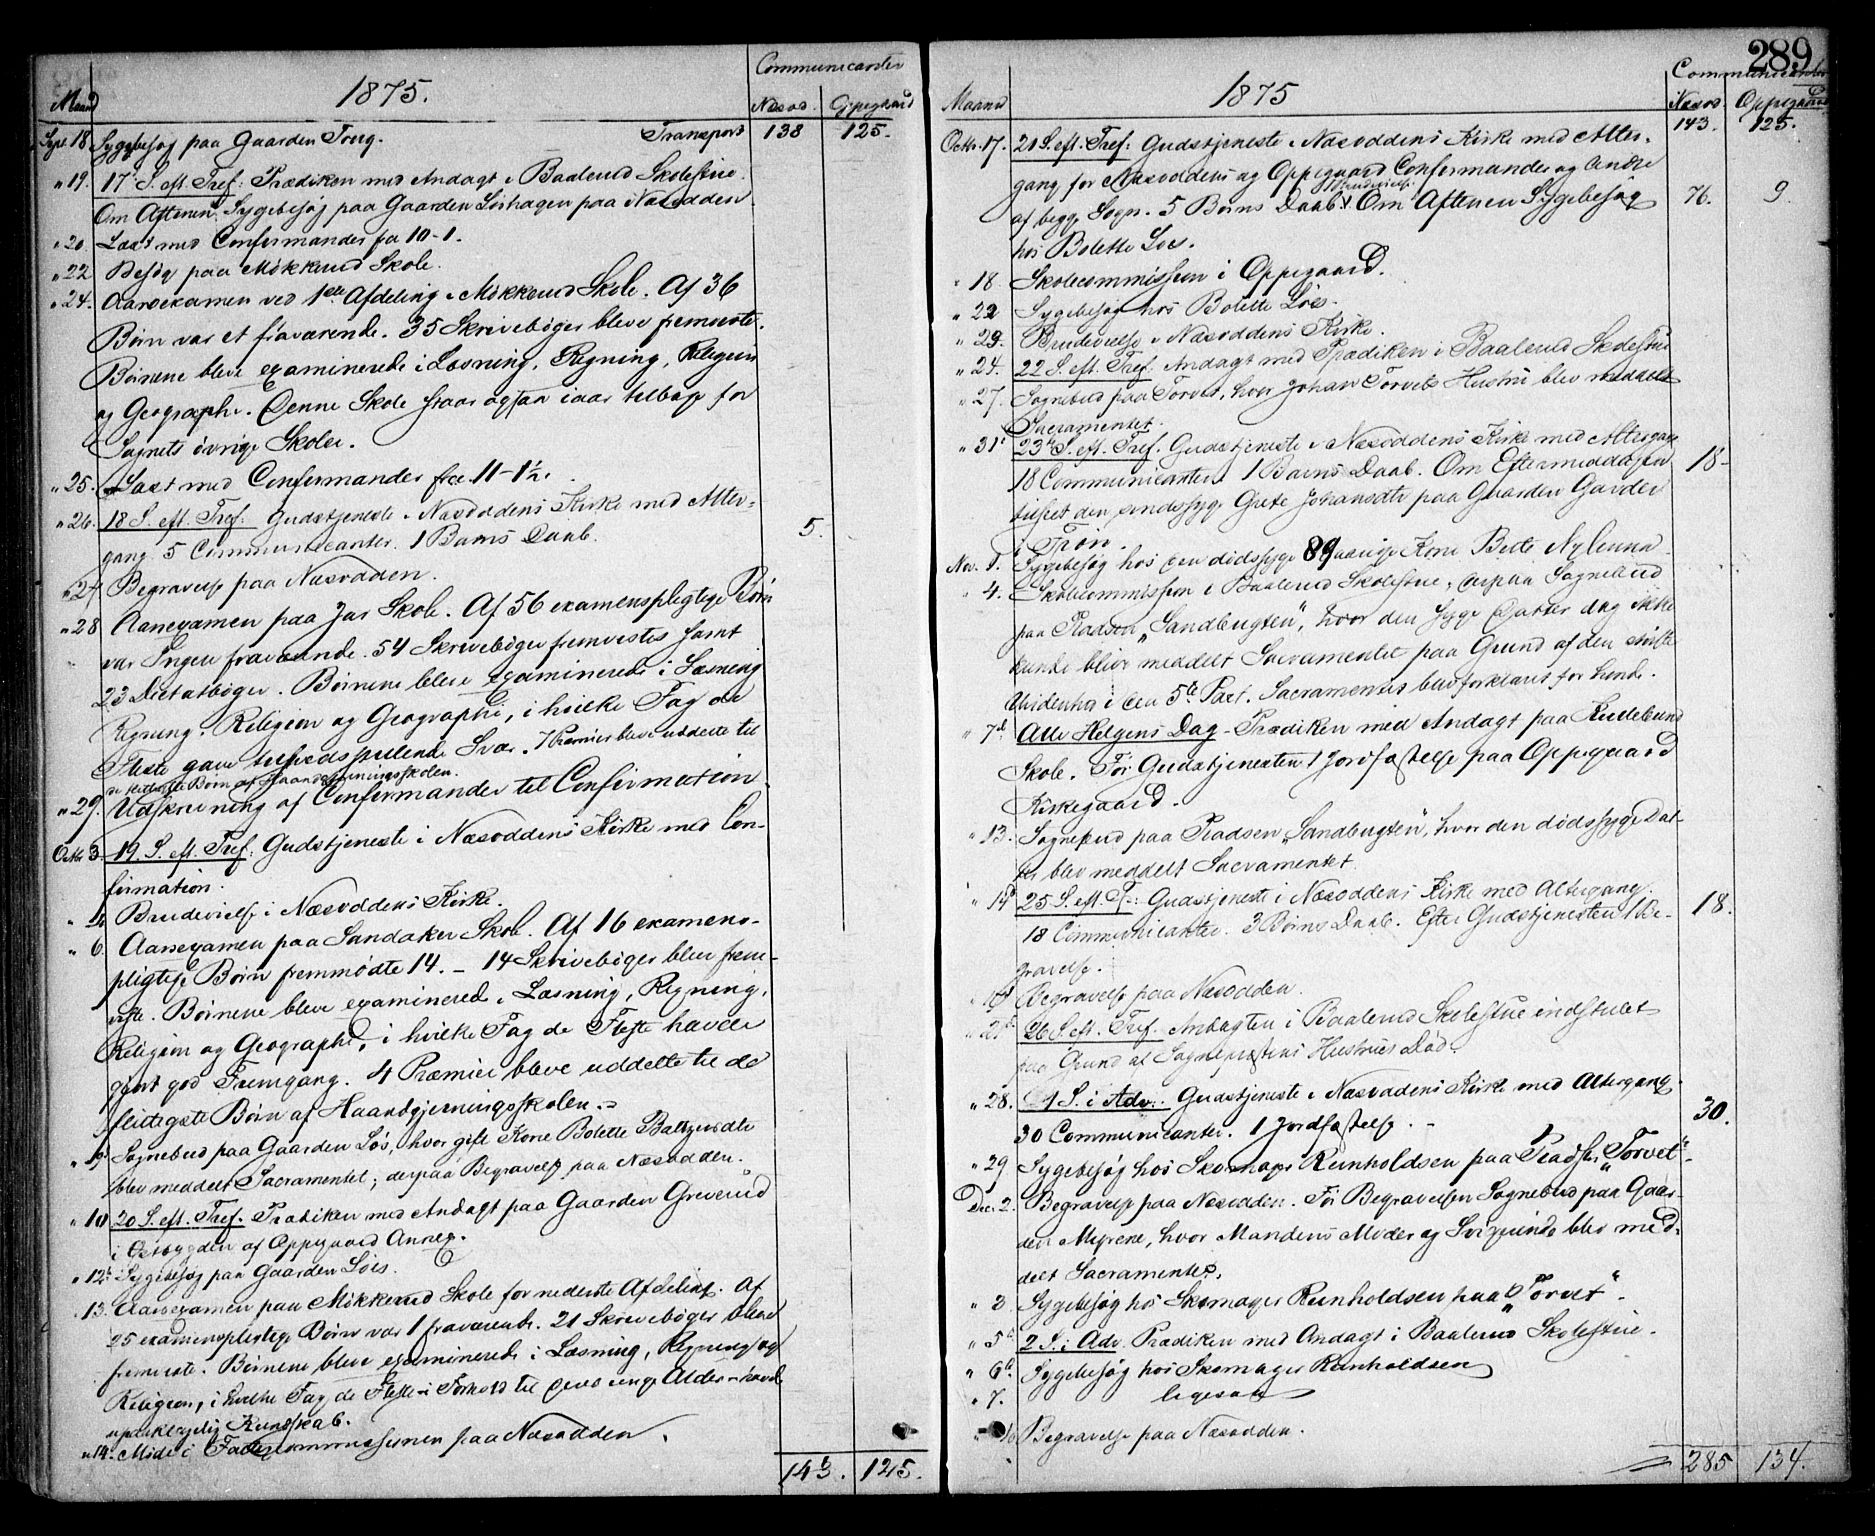 1875.
Communicanter
Maaned
Næsod. Oppegaard
Sept. 18 Sygebesøg paa Gaarden Toug. Transport 138 125.
" 19. 17. S. eft. Tref: Prædiken med Andagt i Baalerud Skolestue.
Om Aftenen Sygebesøg paa Gaarden Lørhagen paa Næsodden
" 20 Læst med Confirmander fra 10-1.
" 22 Besøg paa Mökkerud Skole.
" 24. Aarsexamen ved 1ste Afdeling i Mökkerud Skole. Af 36
Børn var et fraværende. 35 Skrivebøger bleve fremviste.
Børnene bleve examinerede i Læsning, Regning, Religion
og Geographi. Denne Skole staar ogsaa iaar tilbage for
Sognets øvrige Skoler.
" 25. Læst med Confirmander fra 11-1½.
" 26. 18 S. eft. Tref: Gudstjeneste i Næsoddens Kirke med Alter-
gang. 5 Communicanter. 1 Barns Daab. 5.
" 27 Begravelse paa Næsodden.
" 28 Aarsexamen paa Jær Skole. Af 56 examenspligtige Børn
var Ingen fraværende. 54 Skrivebøger fremvistes samt
23 Dictatbøger. Børnene bleve examinerede i Læsning
Regning, Religion og Geographi, i hvilke Fag de
Fleste gave tilfredsstillende Svar. Præmier bleve uddelte til
de flittigste Børn af Haandgjerningsskolen.
" 29. Udskrivning af Confirmander til Confirmation.
Octbr 3. 19. S. eft. Tref: Gudstjeneste i Næsoddens Kirke med Con-
firmation.
" 4 Brudevielse i Næsoddens Kirke.
" 6. Aarsexamen paa Sandaker Skole. Af 16 examens-
pligtige Børn fremmødte 14. - 14 Skrivebøger blev frem-
viste. Børnene bleve examinerede i Læsning, Regning,
Religion og Geographi, i hvilke Fag de Fleste havde
gjort god Fremgang. 4 Præmier bleve uddelte til de
flittigste Børn af Haandgjerningsskolen.
" 9 Sognebud paa Gaarden Løs, hvor gift Kone Bolette Baltzersdtr
blev meddelt Sacramentet; derpaa Begravelse paa Næsodden.
" 10 20 S. eft. Tref. Prædiken med Andagt paa Gaarden Greverud
i Østbygden af Oppegaard Annex.
" 12. Sygebesøg paa Gaarden Løes.
13. Aarsexamen paa Mökkerud Skole for nederste Afdeling. Af
25 examenspligtige Børn var 1 fraværende. 21 Skrivebøger bleve
fremviste. Børnene bleve examinerede i Læsning, Regning og
Religion, i hvilke Fag de Fleste i Forhold til deres unge Alder havde
Kundskab.
" 14. Møde i Fattigcommissionen paa Næsodden.
143. 125.
289
1875
Communicanter
Maaned
Næsod. Oppegaard
143. 125.
Octbr. 17. 21 S. eft. Tref: Gudstjeneste i Næsoddens Kirke med Alter-
gang for Næsoddens og Oppegaard Confirmander og Andre
af begge Sogn. 5 Børns Daab. Om Aftenen Sygebesøg 76. 9.
hos Bolette Løes.
" 18. Skolecommission i Oppegaard.
" 22 Sygebesøg hos Bolette Löes.
" 23. Brudevielse i Næsoddens Kirke.
" 24. 22 S. eft. Tref. Andagt med Prædiken i Baalerud Skolestue
" 27. Sognebud paa Torvet, hvor Johan Torvets Hustru blev meddelt
Sacramentet.
" 31. 23de S. eft. Tref. Gudstjeneste i Næsoddens Kirke med Altergang
18 Communicanter. 1 Barns Daab. Om Eftermiddagen 18-
tilseet den sindssyge Grete Johansdtr paa Gaarden Garder
i Frøn.
Nov. 1. Sygebesøg hos den dødssyge 89 aarige Kone Berte Nylænna.
" 4. Skolecommission i Baalerud Skolestue; derpaa Sognebud
paa Pladsen "Sandbugten", hvor den syge Datter dog ikke
kunde blive meddelt Sacramentet paa Grund af den
Uvidenhed i den 5te Part. Sacramentet blev forklaret for hende.
" 7d Alle Helgens Dag - Prædiken med Andagt paa
Skole. Før Gudstjenesten 1 Jordfæstelse paa Oppegaard
Kirkegaard.
" 13. Sognebud paa Pladsen "Sandbugten", hvor den dødssyge Dat-
ter blev meddelt Sacramentet.
" 14d 25 S. eft. T.: Gudstjeneste i Næsoddens Kirke med Altergang.
18 Communicanter. 3 Børns Daab. Efter Gudstjenesten 1 Be- 18.
gravelse.
Begravelse paa Næsodden.
" 21 26 S. eft. Tref. Andagten i Baalerud Skolestue indstillet
paa Grund af Sognepræstens Hustrues Død.
" 28. 1 S. i Adv.: Gudstjeneste i Næsoddens Kirke med Altergang
30 Communicanter. 1 Jordfæstelse. 30.
" 29 Sygebesøg hos Skomager Reinholdsen paa Pladsen "Torvet".
Dec. 2. Begravelse paa Næsodden. Før Begravelsen Sognebud paa Gaar-
den Myrene, hvor Mandens Moder og Svigerinde blev med-
delt Sacramentet.
" 3 Sygebesøg hos Skomager Reinholdsen paa "Torvet".
" 5. 2 S. i Adv. Prædiken med Andagt i Baalerud Skolestue.
" 6. Sygebesøg hos Skomager Reinholdsen
" 7. ligesaa
" 10 Begravelse paa Næsodden.
285 134.